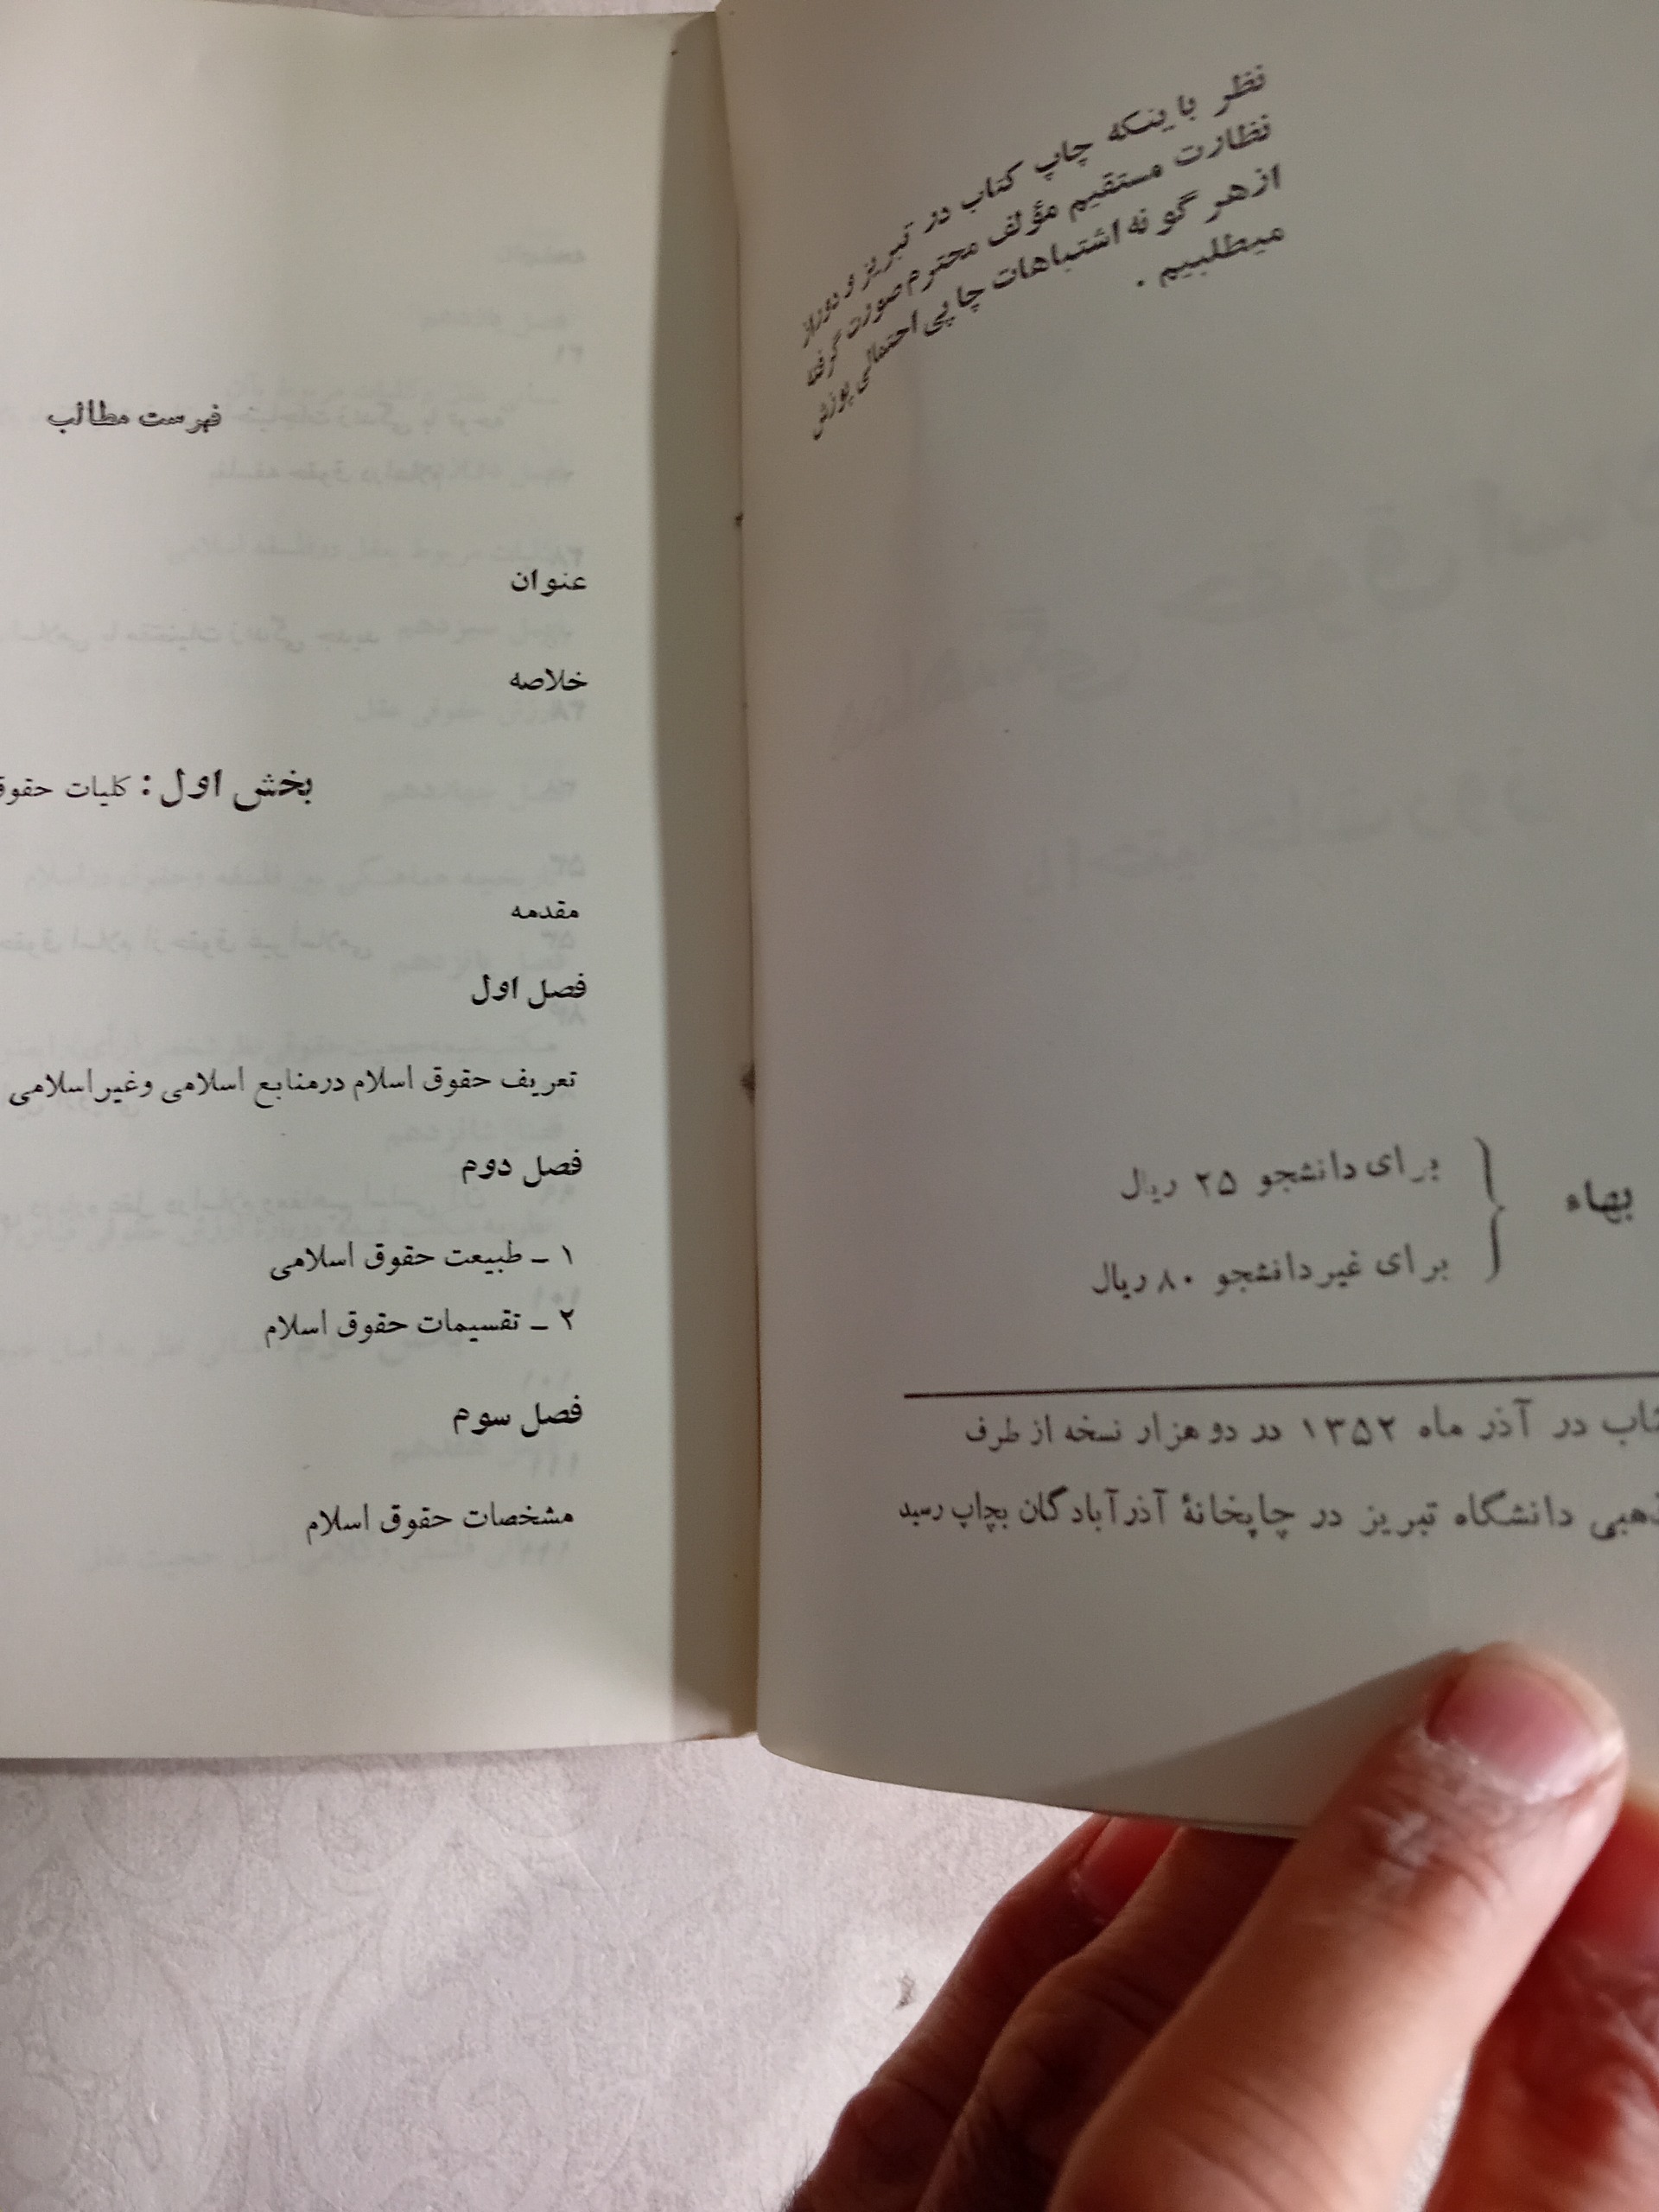 نظر باینکه چاپ کتاب در تبریز و دوراز
نظارت مستقیم مؤلف محترم صورت گرفته
ازهر گونه اشتباهات چاپی احتمالی پوزش
میطلبیم .
بهاء
برای دانشجو ۲۵ ریال
برای غیردانشجو ۸۰ ریال
در آذر ماه ۱۳۵۲ در دو هزار نسخه از طرف
دانشگاه تبریز در چاپخانهٔ آذرآبادگان بچاپ رسید
فهرست مطالب
عنوان
خلاصه
بخش اول : کلیات
مقدمه
فصل اول
تعریف حقوق اسلام درمنابع اسلامی وغیراسلامی
فصل دوم
۱ ـ طبیعت حقوق اسلامی
۲ ـ تقسیمات حقوق اسلام
فصل سوم
مشخصات حقوق اسلام